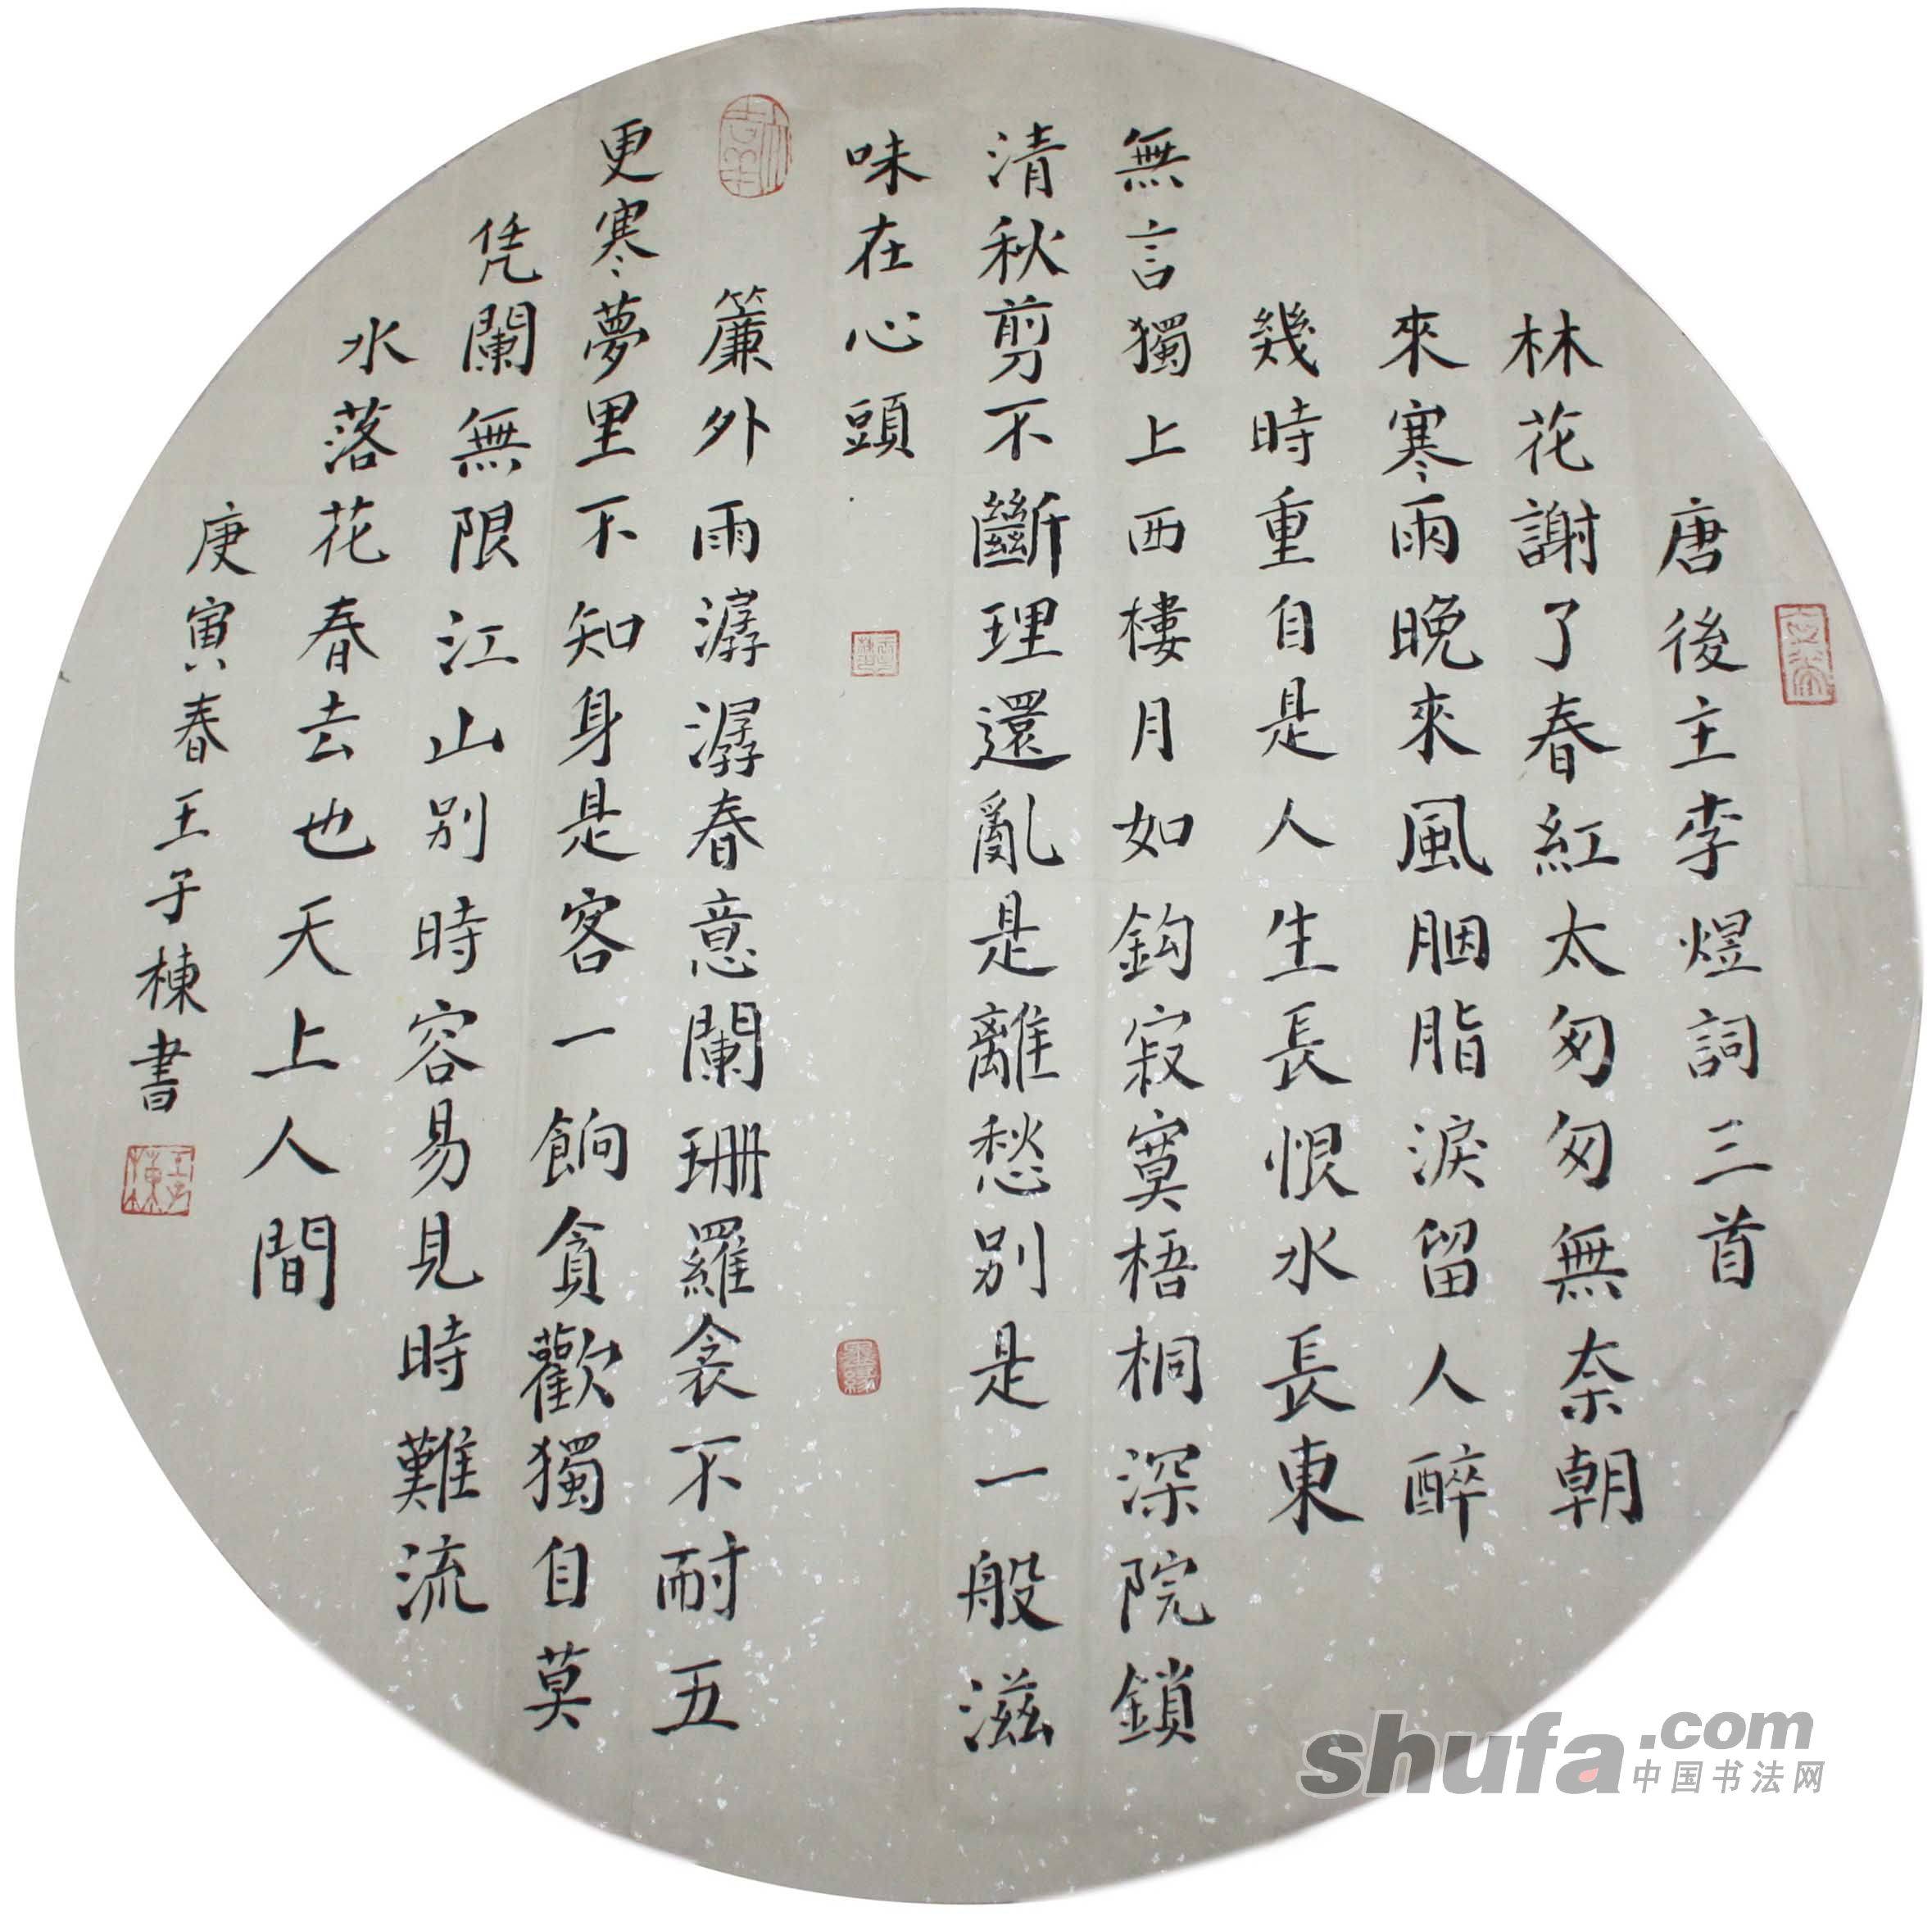 唐後主李煜詞三首
林花謝了春紅太匆匆無奈朝
來寒雨晚來風胭脂淚留人醉
幾時重自是人生長恨水長東
無言獨上西樓月如鈎寂寞梧桐深院鎖
清秋剪不斷理還亂是離愁別是一般滋
味在心頭
簾外雨潺潺春意闌珊羅衾不耐五
更寒夢里不知身是客一餉貪歡獨自莫
凭闌無限江山別時容易見時難流
水落花春去也天上人間
庚寅春王子棟書
王子棟
墨緣
shufa.com
中国书法网